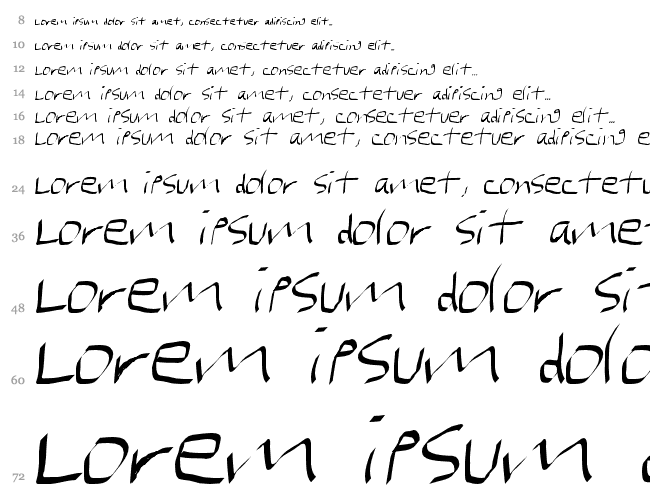 8 Lorem ipsum dolor sit amet, consectetuer adipiscing elit...
10 Lorem ipsum dolor sit amet, consectetuer adipiscing elit...
12 Lorem ipsum dolor sit amet, consectetuer adipiscing elit...
14 Lorem ipsum dolor sit amet, consectetuer adipiscing elit...
16 Lorem ipsum dolor sit amet, consectetuer adipiscing elit...
18 Lorem ipsum dolor sit amet, consectetuer adipiscing e
24 Lorem ipsum dolor sit amet, consectetu
36 Lorem ipsum dolor sit ame
48 Lorem ipsum dolor si
60 Lorem ipsum dolo
72 Lorem ipsum